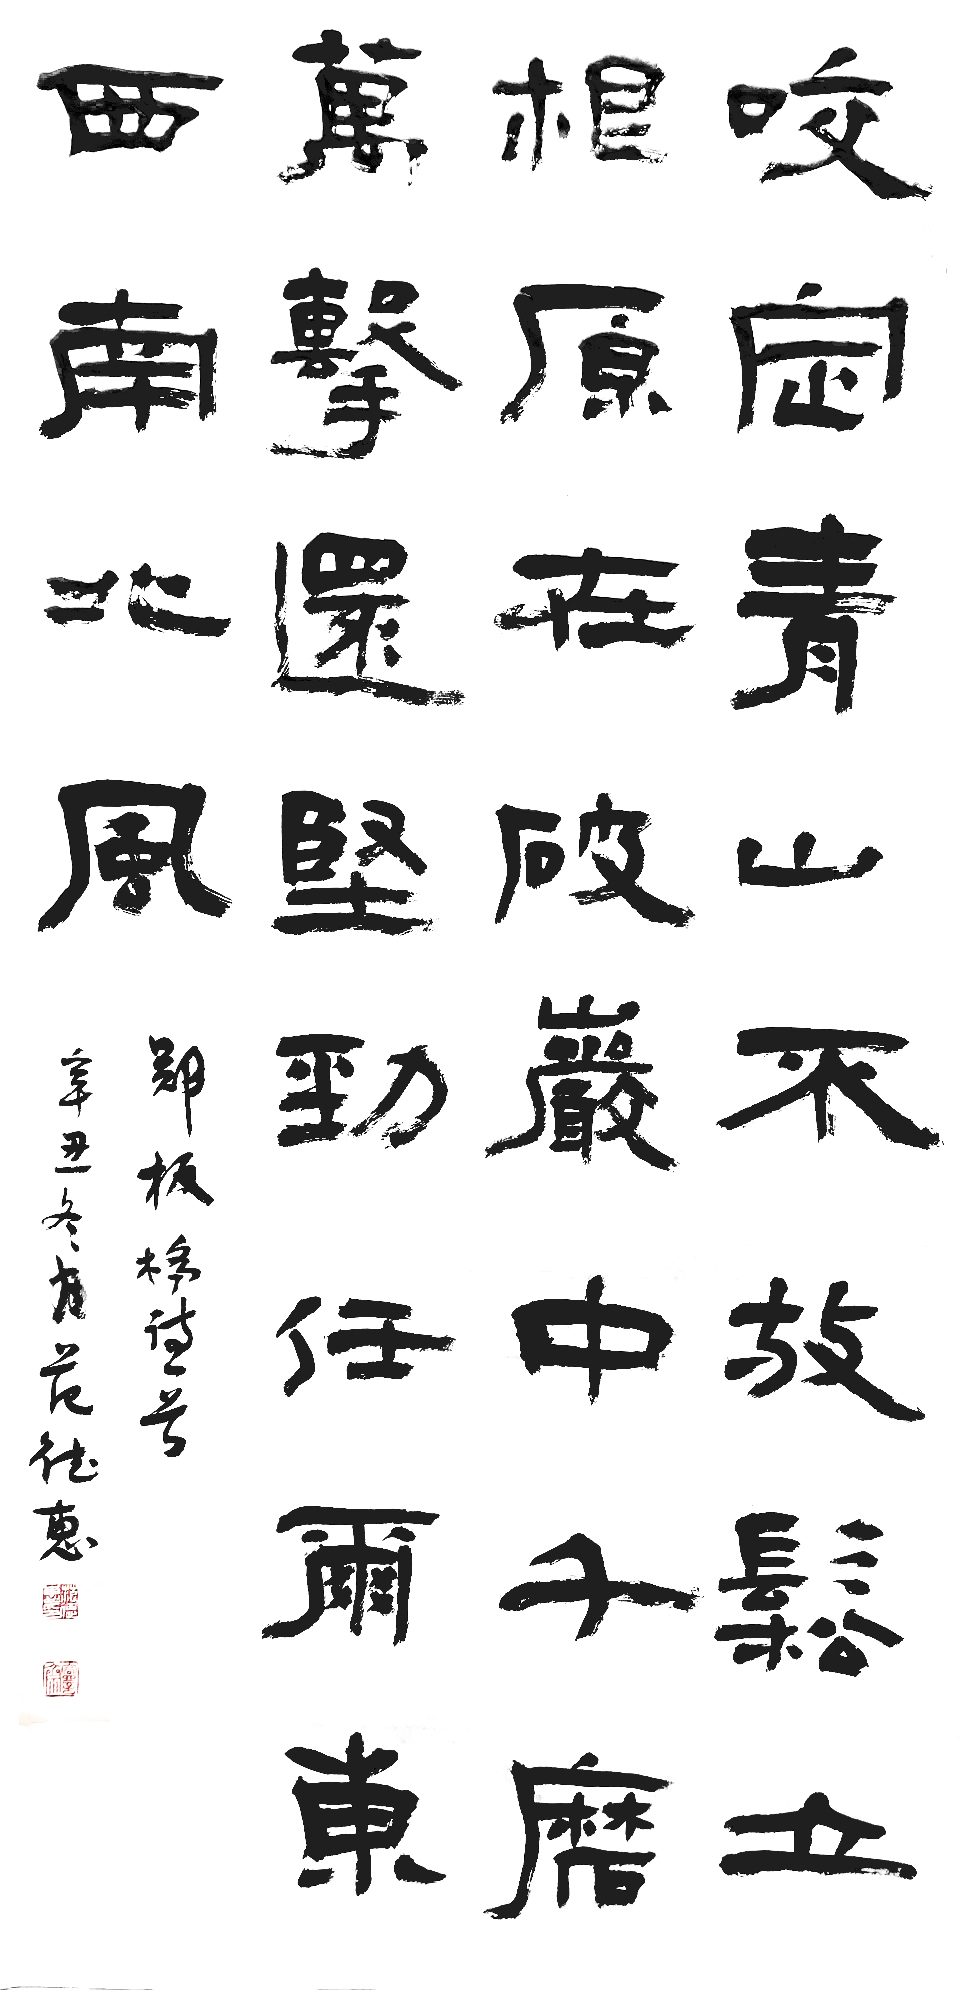 咬定青山不放鬆立
根原在破巖中千磨
萬擊還堅勁任爾東
西南北風
鄭板橋詩一首
辛丑冬月范德惠